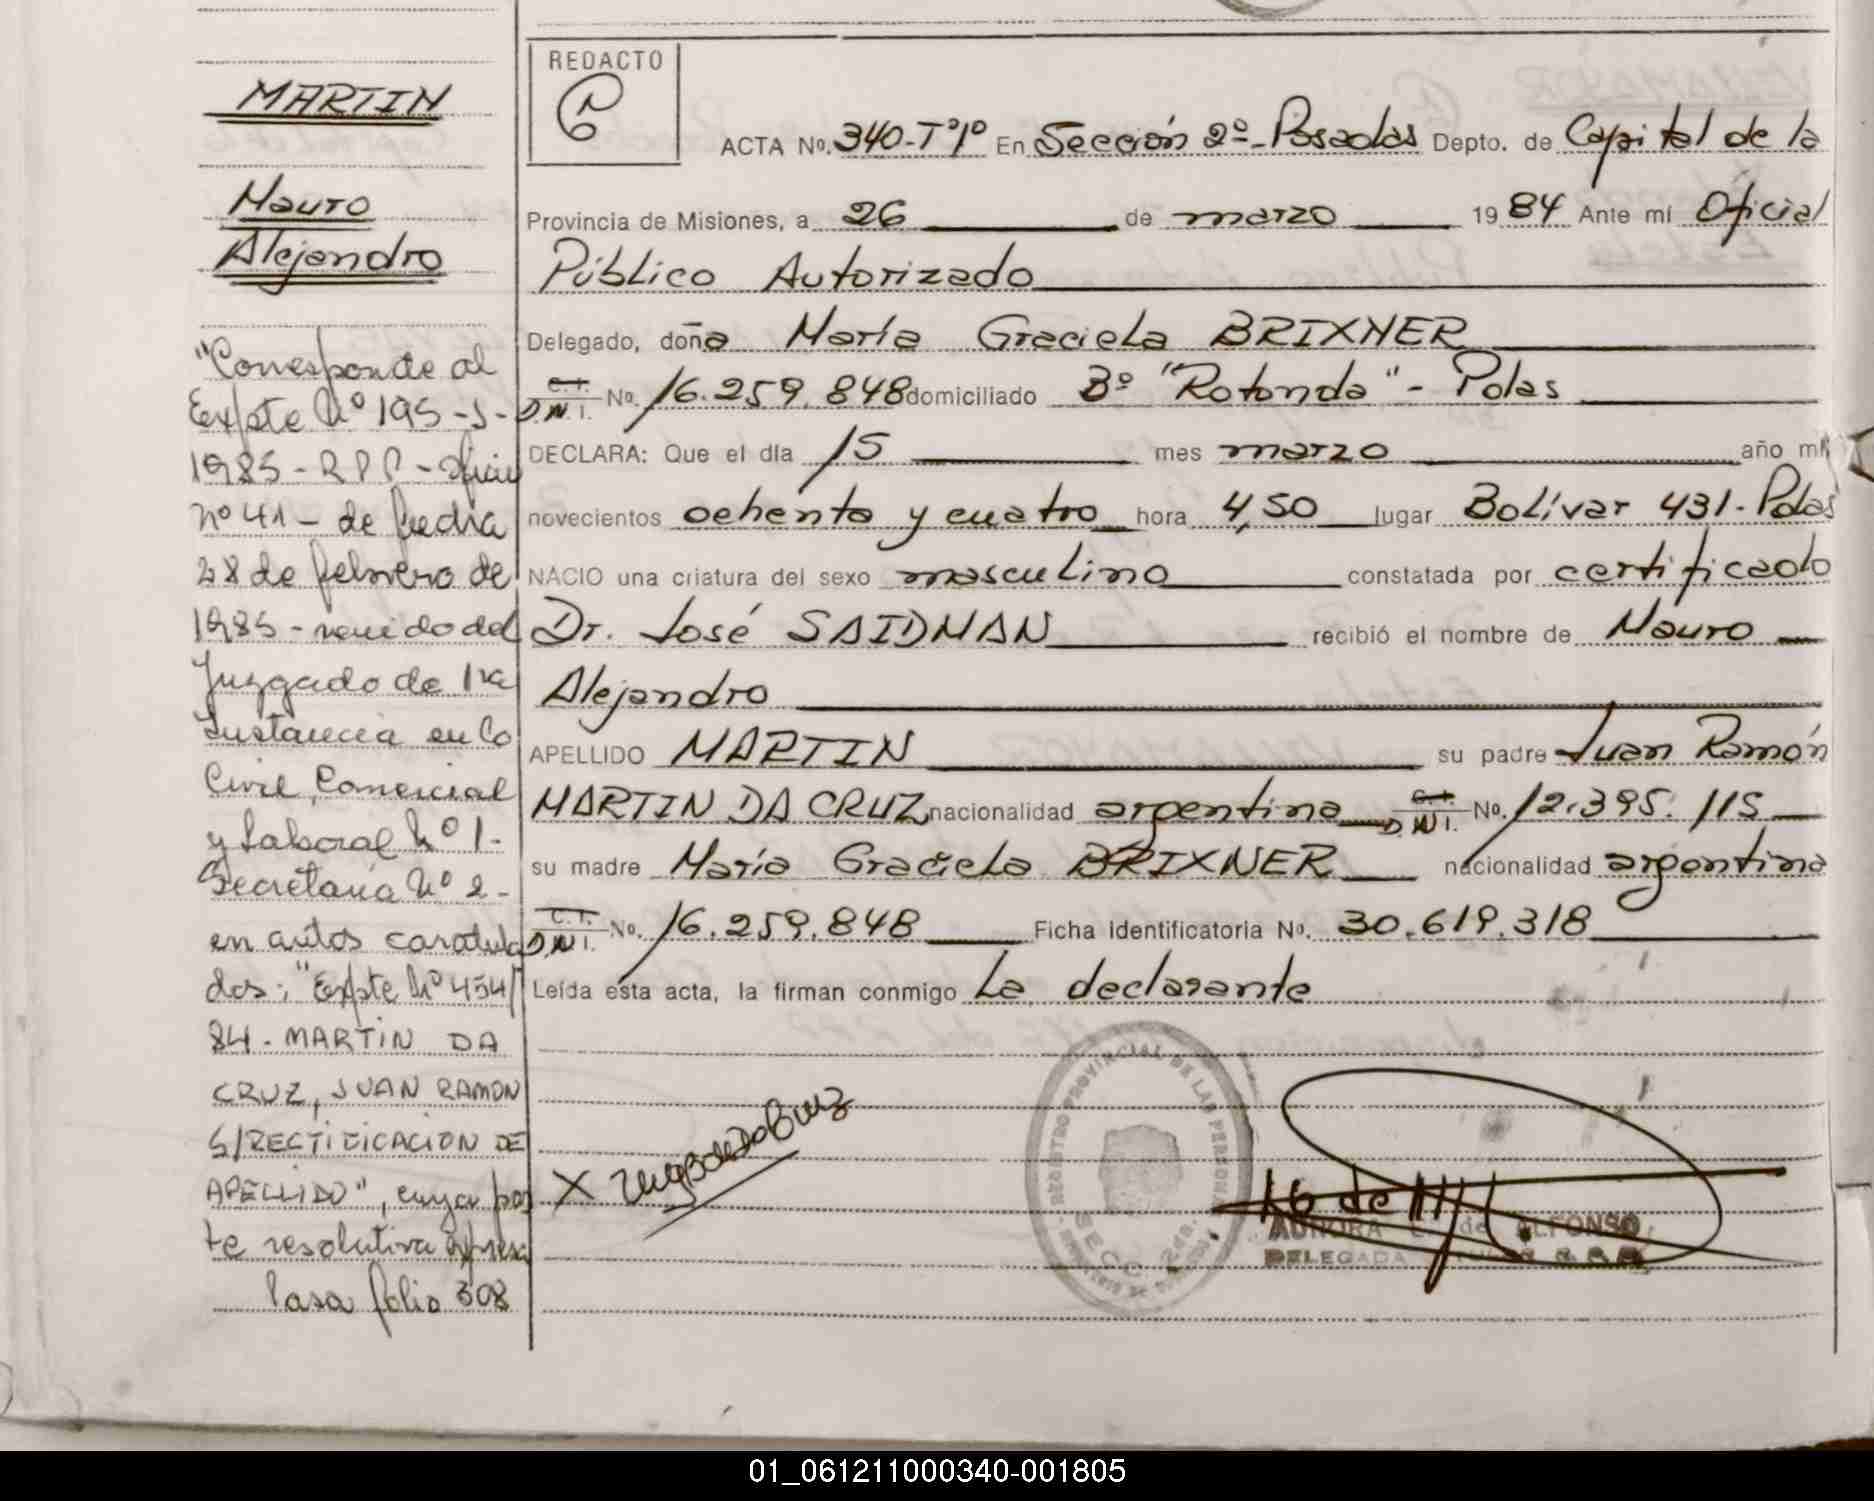 MARTIN
Mauro
Alejandro
"Corresponde al
Expte Nº 195-S-
1985-RPP-Oficio
nº 41 - de fecha
28 de febrero de
1985 - venido del
Juzgado de 1ra
Instancia en lo
Civil, Comercial
y Laboral Nº 1-
Secretaría Nº 2-
en autos caratula
dos: "Expte Nº 454/
84. MARTIN DA
CRUZ, JUAN RAMON
S/RECTIFICACION DE
APELLIDO", cuya par
te resolutiva expresa
Pasa folio 308
REDACTO
ACTA Nº. 340-Tº1º En Sección 2º-Posadas Depto. de Capital de la
Provincia de Misiones, a 26 de marzo 1984 Ante mí Oficial
Público Autorizado
Delegado, doña María Graciela BRIXNER
C.I. D.N.I. Nº. 16.259.848 domiciliado Bº "Rotonda" - Pdas
DECLARA: Que el día 15 mes marzo año mil
novecientos ochenta y cuatro hora 4,50 lugar Bolívar 431-Pdas
NACIO una criatura del sexo masculino constatada por certificado
Dr. José SAIDMAN recibió el nombre de Mauro
Alejandro
APELLIDO MARTIN su padre Juan Ramón
MARTIN DA CRUZ nacionalidad argentina C.I. D.N.I. Nº. 12.395.115
su madre María Graciela BRIXNER nacionalidad argentina
C.I. D.N.I. Nº. 16.259.848 Ficha identificatoria Nº. 30.619.318
Leída ésta acta, la firman conmigo La declarante
REGISTRO PROVINCIAL DE LAS PERSONAS
X
AURORA de ALFONSO
DELEGADA
01_061211000340-001805